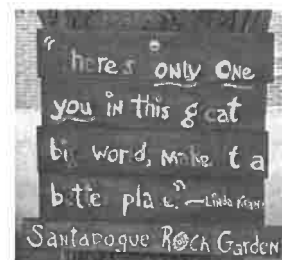 "there's only one
you in this great
big world, make it a
better place."
Santapogue Rock Garden